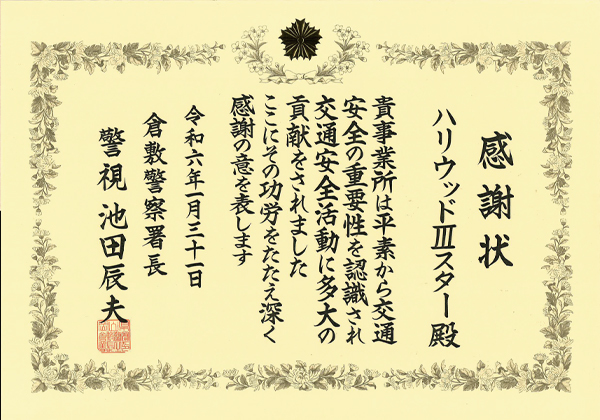 感謝状
ハリウッドⅢスター殿
貴事業所は平素から交通
安全の重要性を認識され
交通安全活動に多大の
貢献をされました
ここにその功労をたたえ深く
感謝の意を表します
令和六年一月三十一日
倉敷警察署長
警視 池田辰夫